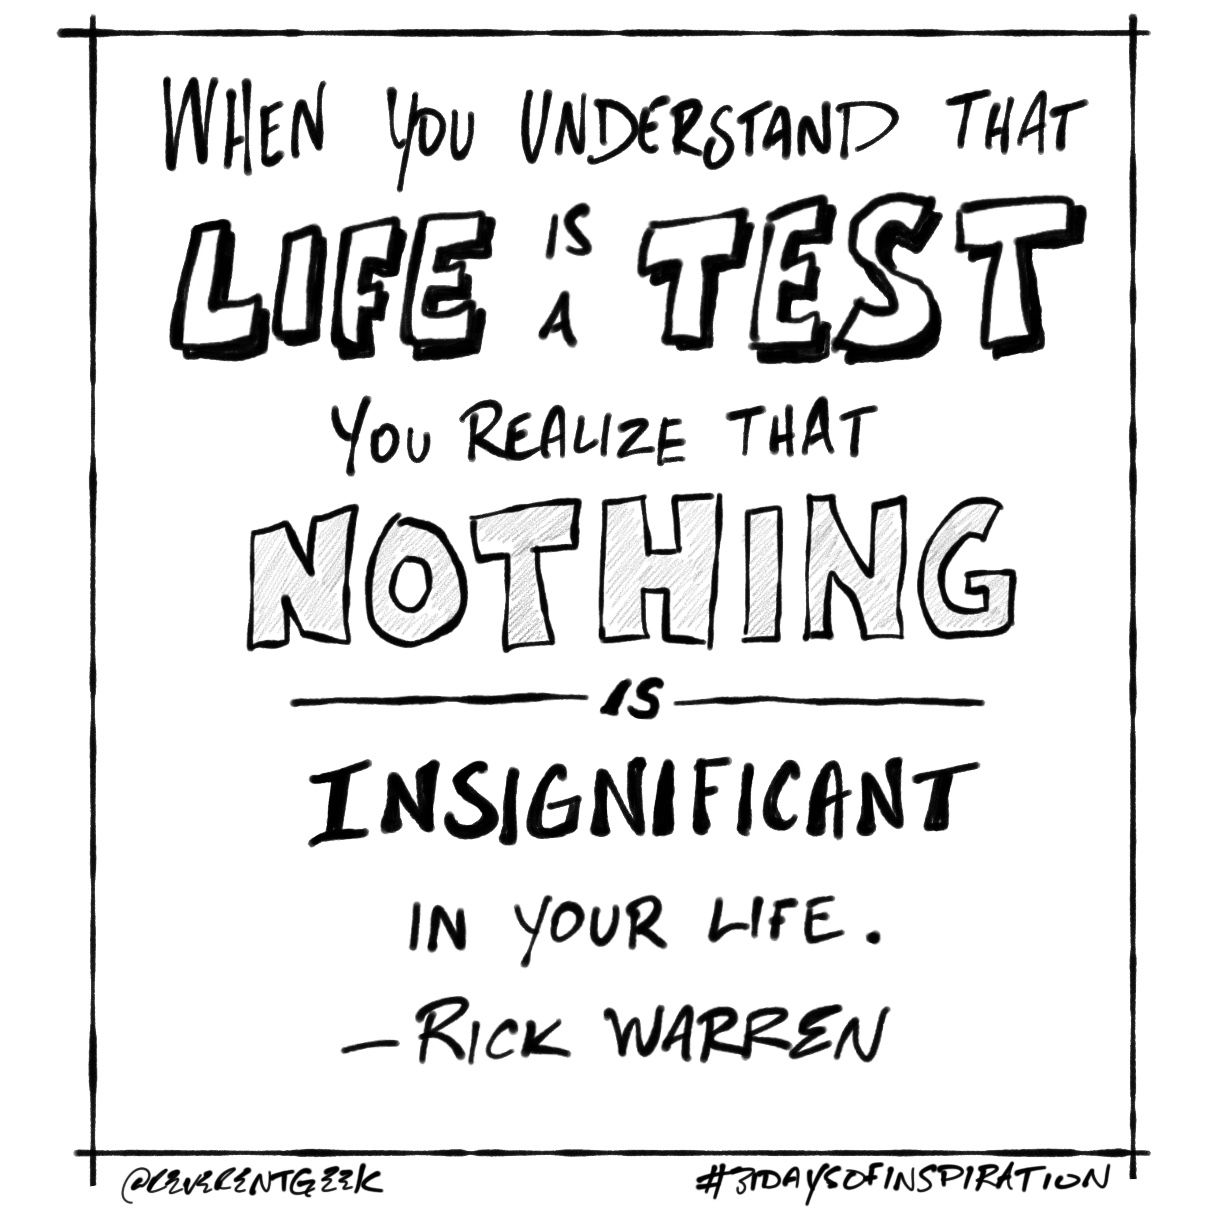 WHEN YOU UNDERSTAND THAT
LIFE IS A TEST
YOU REALIZE THAT
NOTHING
IS
INSIGNIFICANT
IN YOUR LIFE.
—RICK WARREN
@REVERENTGEEK
#31DAYSOFINSPIRATION